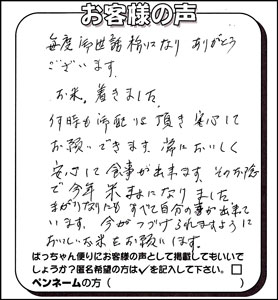 お客様の声
毎度お世話様になり ありがとう
ございます。
お米。着きました。
何時も御配慮頂き 安心して
お願いできます。常においしく
安心して食事が出来ます。そのお陰
で今年 米寿になりました。
まがりなりにも すべて自分の事が出来て
います。今がつづけられますように
おいしいお米をお願いします。
ばっちゃん便りにお客様の声として掲載してもいいで
しょうか?匿名希望の方は✓を記入して下さい。□
ペンネームの方( )